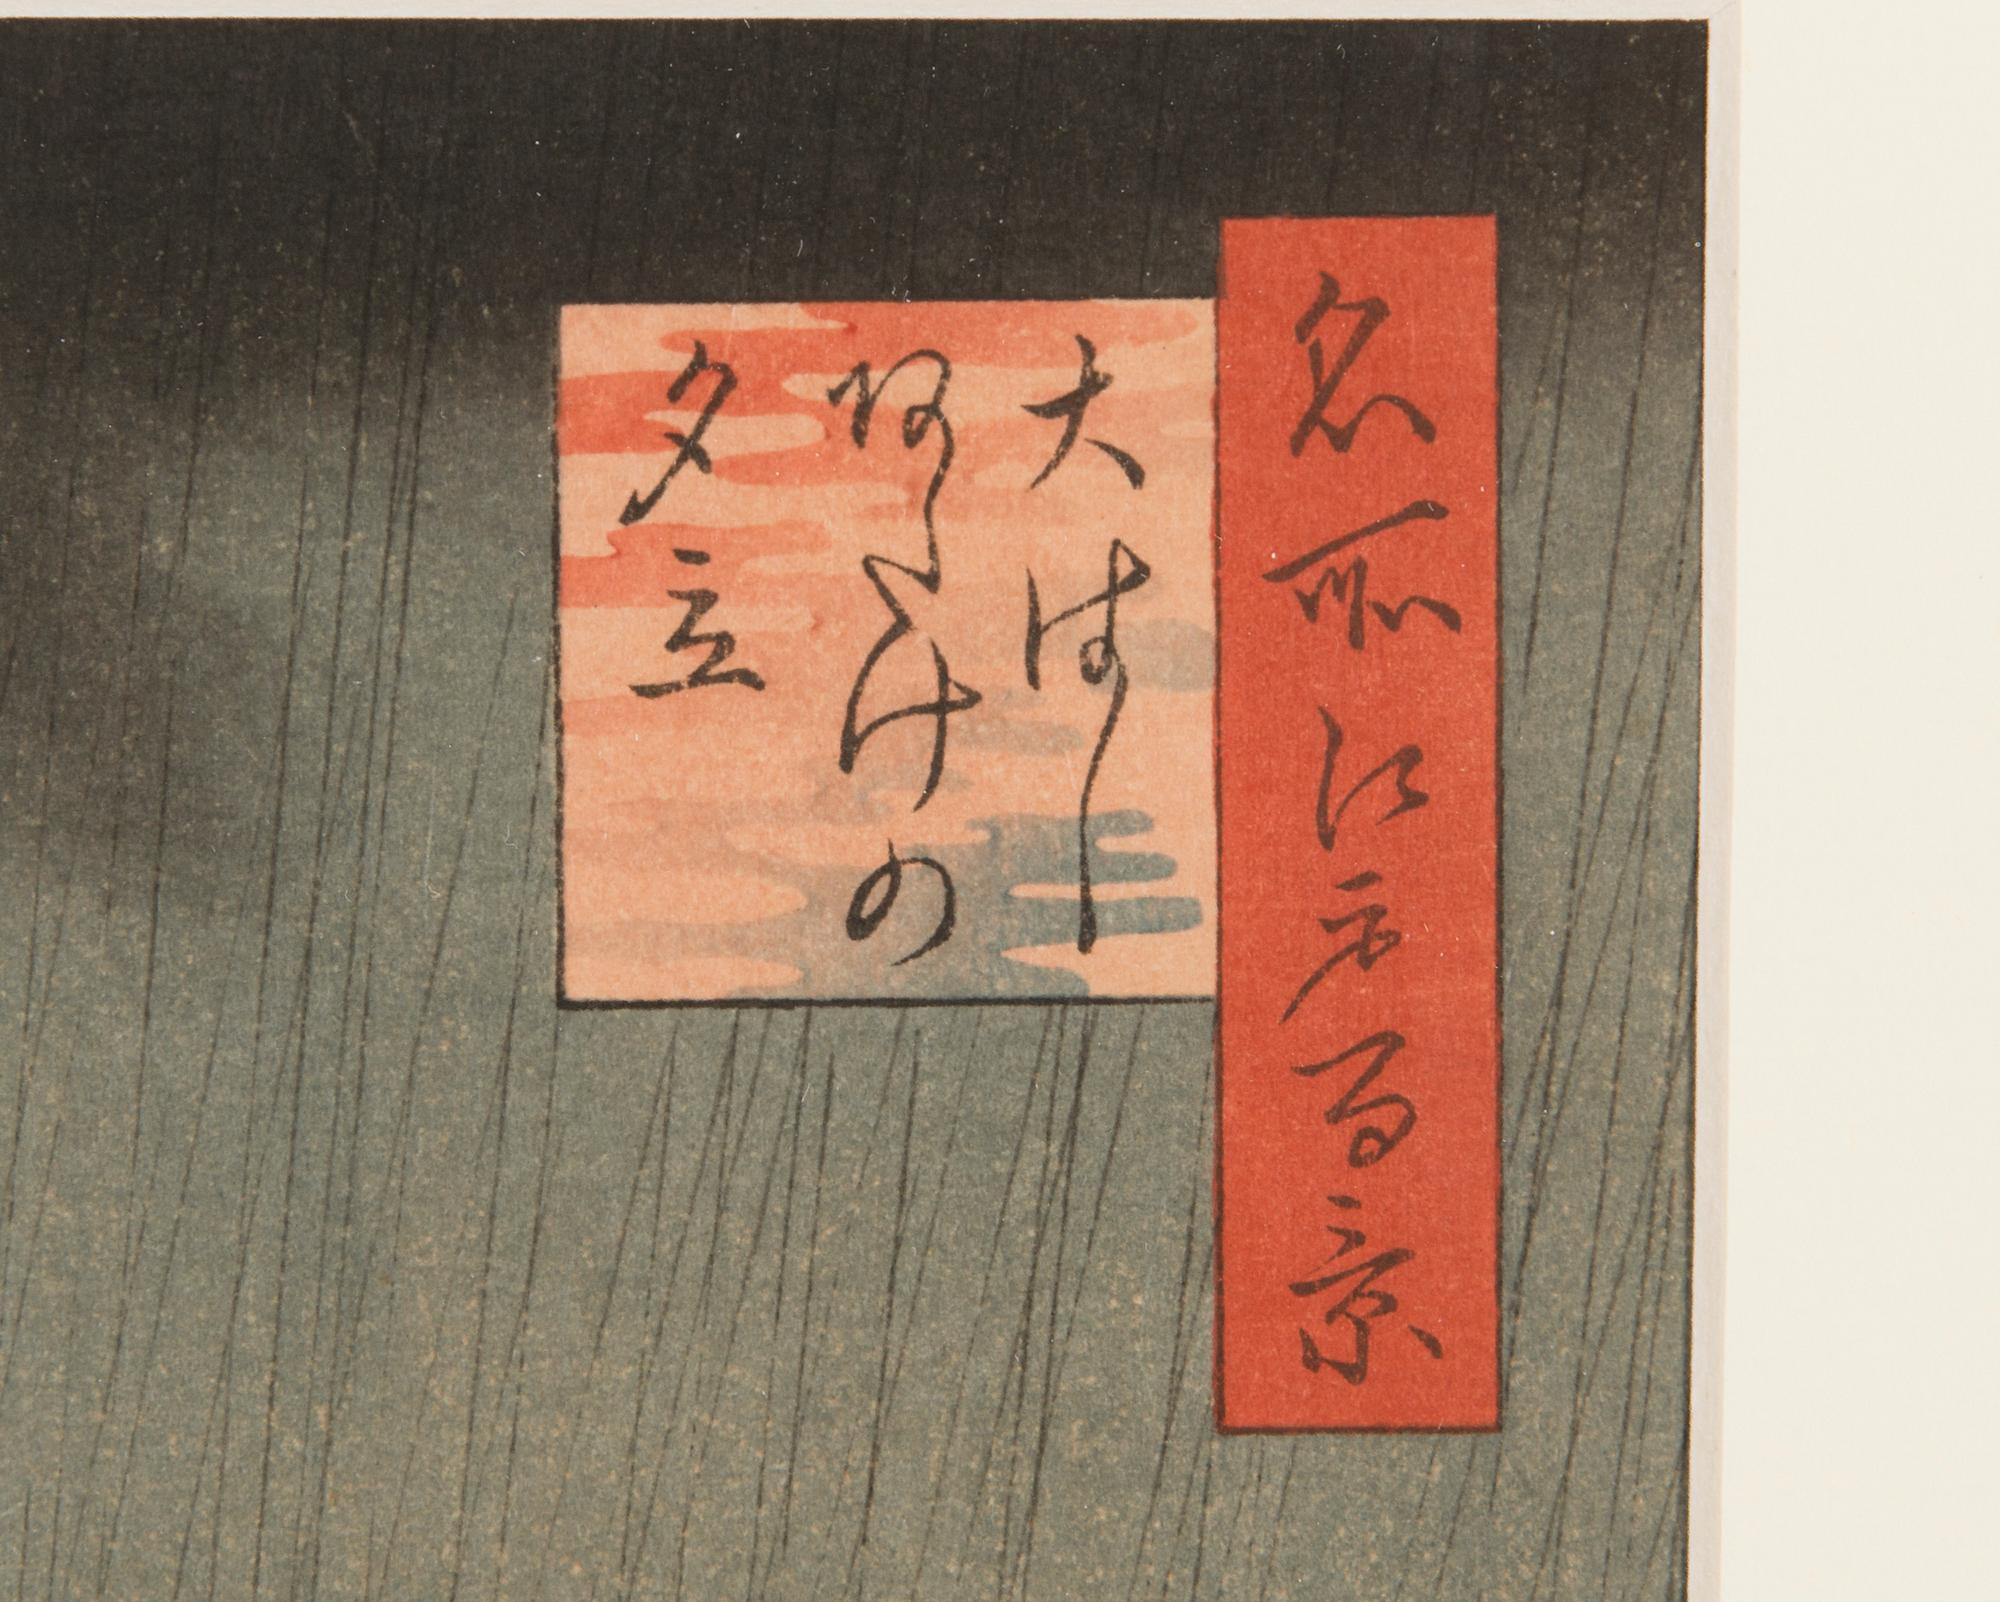 名所江戸百景
大はし
阿たけの
夕立